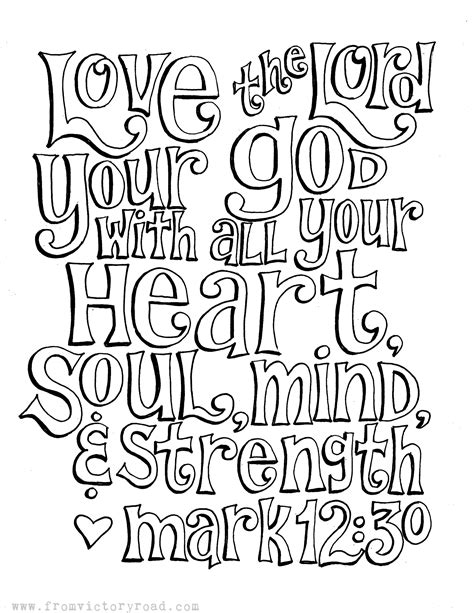 Love the Lord
your god
with all your
Heart,
Soul, mind,
& Strength
mark 12:30
www.fromvictoryroad.com